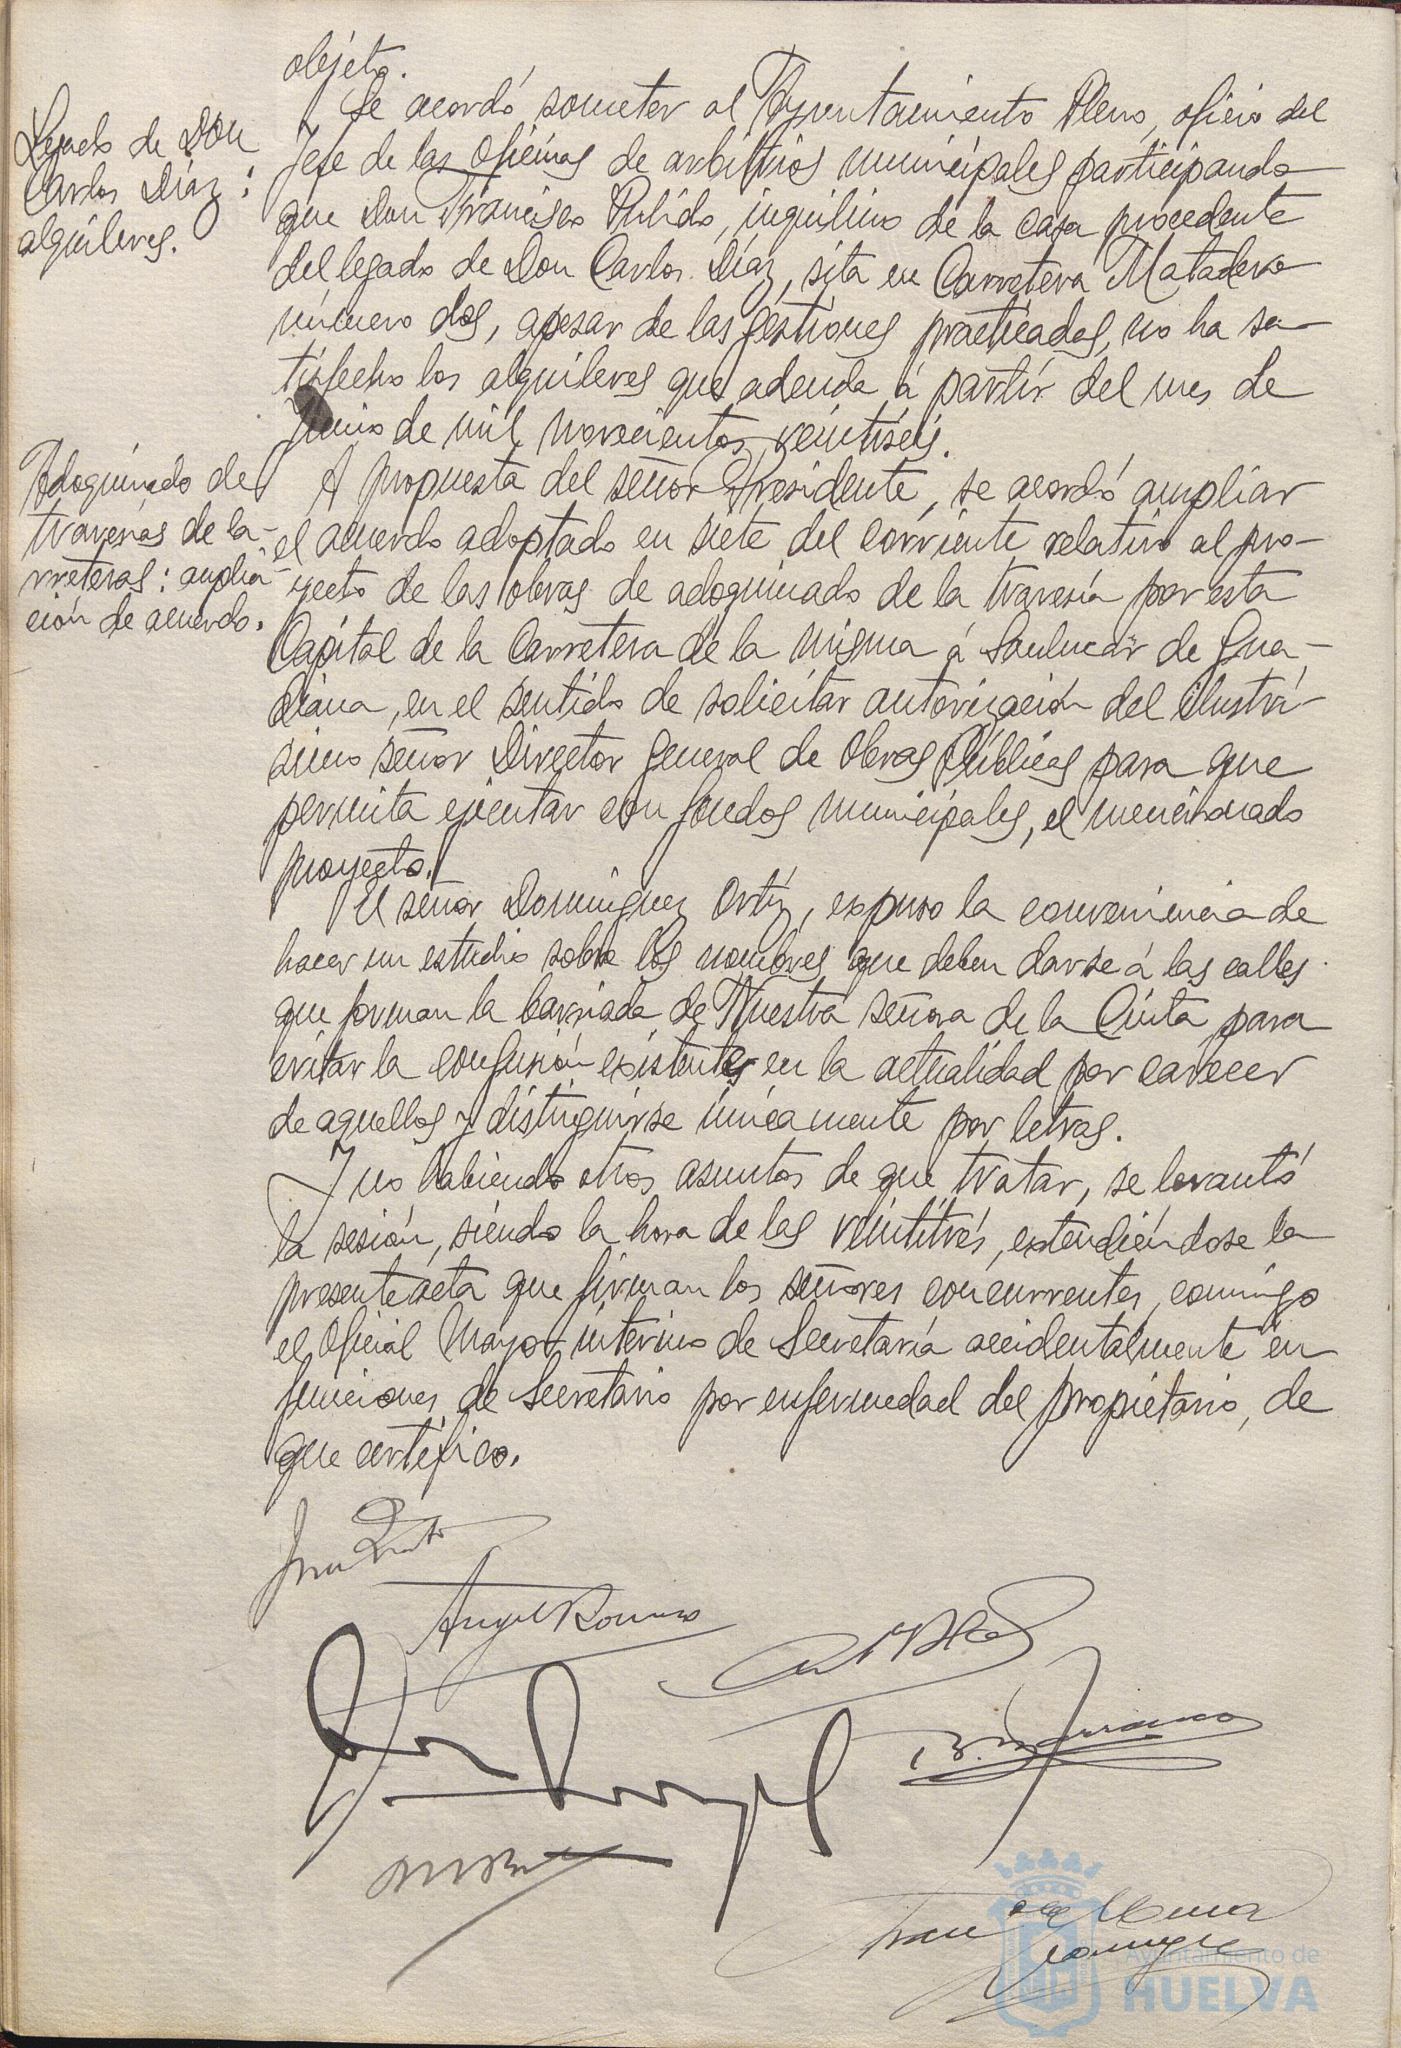 objeto.
Legado de Don
Carlos Díaz:
alquileres.
Se acordó someter al Ayuntamiento Pleno, oficio del
Jefe de las Oficinas de arbitrios municipales participando
que Don Francisco Pulido, inquilino de la casa procedente
del legado de Don Carlos Díaz, sita en Carretera Matadero
número dos, apesar de las gestiones practicadas, no ha sa-
tisfecho los alquileres que adeuda á partir del mes de
Junio de mil novecientos veintiséis.
Adoquinado de
travesías de la-
rreteras: amplia-
ción de acuerdo.
A propuesta del señor Presidente, se acordó ampliar
el acuerdo adoptado en siete del corriente relativo al pro-
yecto de las obras de adoquinado de la travesía por esta
Capital de la Carretera de la misma á Sanlucar de Gua-
diana, en el sentido de solicitar autorización del ilustrí-
simo señor Director General de Obras Públicas para que
permita ejecutar con fondos municipales, el mencionado
proyecto.
El señor Dominguez Ortiz, expuso la conveniencia de
hacer un estudio sobre los nombres que deben darse á las calles
que forman la barriada de Nuestra señora de la Cinta para
evitar la confusión existentes en la actualidad por carecer
de aquellos y distinguirse únicamente por letras.
Y no habiendo otros asuntos de que tratar, se levantó
la sesión, siendo la hora de las veintitrés, extendiéndose la
presente acta que firman los señores concurrentes, conmigo
el Oficial Mayor interino de Secretaría accidentalmente en
funciones de Secretario por enfermedad del propietario, de
que certifico.
Angel Romero
Ayuntamiento de
HUELVA